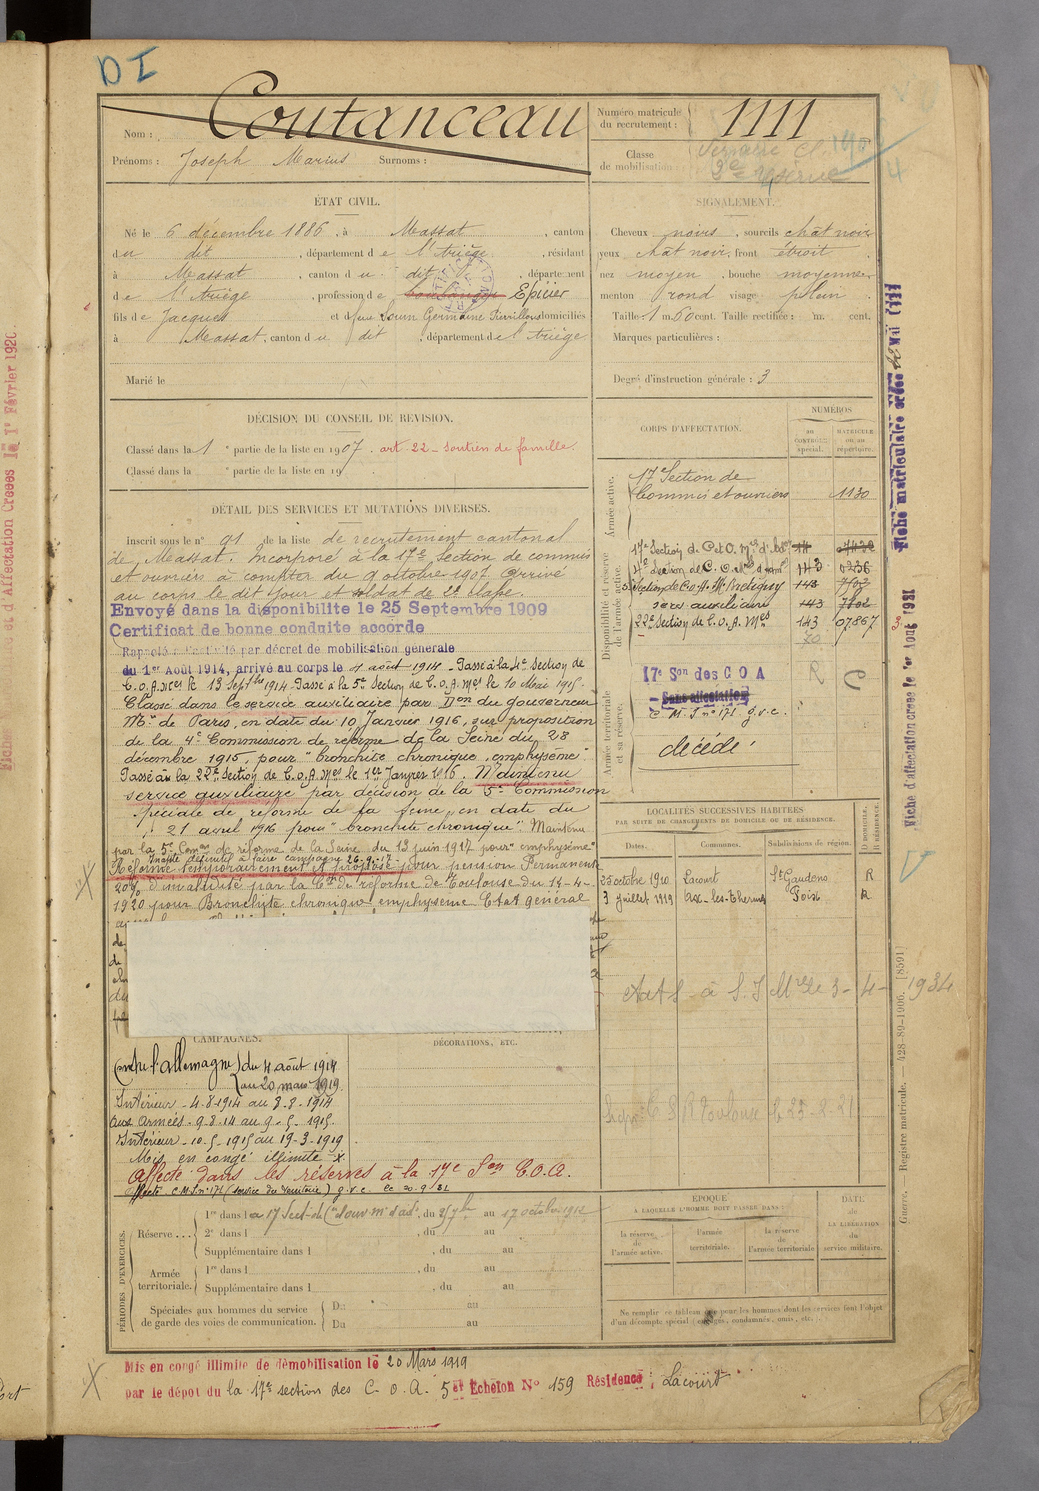 DI
Nom : Coutanceau
Prénoms : Joseph Marius Surnoms :
Numéro matricule du recrutement : 1111
Classe de mobilisation
ÉTAT CIVIL.
Né le 6 décembre 1886, à Massat, canton
du dit, département de l'Ariège, résidant
à Massat, canton du dit, département
de l'Ariège, profession de Epicier
fils de Jacques et de feue Germaine domiciliés
à Massat, canton du dit, département de l'Ariège
Marié le
SIGNALEMENT.
Cheveux noirs, sourcils chât noir
yeux chât noir, front étroit
nez moyen, bouche moyenne
menton rond visage plein
Taille : 1 m. 60 cent. Taille rectifiée : m. cent.
Marques particulières :
Degré d'instruction générale : 3
DÉCISION DU CONSEIL DE REVISION.
Classé dans la 1 e partie de la liste en 1907. art. 22 - soutien de famille.
Classé dans la e partie de la liste en 19
DÉTAIL DES SERVICES ET MUTATIONS DIVERSES.
Inscrit sous le n° 91 de la liste de recrutement cantonal
de Massat. Incorporé à la 17e Section de commis
et ouvriers à compter du 9 octobre 1907. Arrivé
au corps le dit jour et soldat de 2e classe.
Envoyé dans la disponibilite le 25 Septembre 1909
Certificat de bonne conduite accorde
Rappelé à l'activité par décret de mobilisation générale
du 1er Août 1914, arrivé au corps le 4 août 1914 - Passé à la 4e Section de
C.O.A. Mres le 13 Septbre 1914. Passé à la 5e Section de C.O.A. Mes le 10 Mai 1915.
Classé dans le service auxiliaire par Don du gouverneur
Mre de Paris, en date du 10 Janvier 1916, sur proposition
de la 4e Commission de réforme de la Seine du 28
décembre 1915, pour "bronchite chronique, emphysème"
Passé à la 22e Section de C.O.A. Mes le 1er Janvier 1916. Maintenu
service auxiliaire par décision de la 5e Commission
spéciale de réforme de la Seine, en date du
21 avril 1916 pour "bronchite chronique". Maintenu
par la 5e Comon de réforme de la Seine du 13 juin 1917 pour "emphysème"
Inapte définitif à faire campagne 26.9.17
Réformé temporairement et proposé pour pension Permanente
20% d'invalidité par la Con de réforme de Toulouse du 14-4-
1920 pour Bronchite chronique emphysème Etat général
CORPS D'AFFECTATION.
NUMÉROS
au CONTRÔLE spécial.
MATRICULE ou au répertoire.
Armée active.
17e Section de
Commis et ouvriers 1130
Disponibilité et réserve de l'armée active.
17e Section de C et O. Mres d'Adon
4e Section de C. O. 143 0236
5e Section de C.O.A. 143
serv auxiliaire 143
22e Section de C.O.A. Mes 143 07867
Armée territoriale et sa réserve.
17e Son des C O A
Sans affectation
C M. S. n° 171 g.v.c.
décédé
LOCALITÉS SUCCESSIVES HABITÉES
PAR SUITE DE CHANGEMENTS DE DOMICILE OU DE RÉSIDENCE.
Dates. Communes. Subdivisions de région. D DOMICILE. R RÉSIDENCE.
25 octobre 1920 Lacourt St Gaudens R
3 juillet 1919 Ax-les-Thermes Foix R
1934
CAMPAGNES.
Contre l'Allemagne du 4 août 1914
au 20 mars 1919
Intérieur - 4-8-1914 au 8-8-1914
Aux Armées - 9-8-14 au 9-5-1915
Intérieur - 10-5-1915 au 19-3-1919
Mis en congé illimité X
Affecté dans les réserves à la 17e Son C.O.A.
Affecté C.M.S. n° 171 (service du territoire) g.v.c. le 20.9.31
DÉCORATIONS, ETC.
PÉRIODES D'EXERCICES.
Réserve... 1re dans la 17 Sect. de au 17 octobre 1912
2e dans l , du au
Supplémentaire dans l , du au
Armée territoriale. 1re dans l , du au
Supplémentaire dans l , du au
Spéciales aux hommes du service de garde des voies de communication. Du au
Du au
ÉPOQUE
À LAQUELLE L'HOMME DOIT PASSER DANS :
la réserve de l'armée active.
l'armée territoriale.
la réserve de l'armée territoriale
DATE de LA LIBÉRATION du service militaire.
Ne remplir ce tableau que pour les hommes dont les services font l'objet
d'un décompte spécial (engagés, condamnés, omis, etc.)
Mis en congé illimité de démobilisation le 20 Mars 1919
par le dépôt du la 17e section des C. O. A. 5e Echelon N° 159 Résidence : Lacourt
Guerre. — Registre matricule. — 428-89-1906. [8591]
Fiche d'affectation creee le 1er Aout 1921
Fiche matriculaire créée
d'Affectation Creees le 1r Février 1920